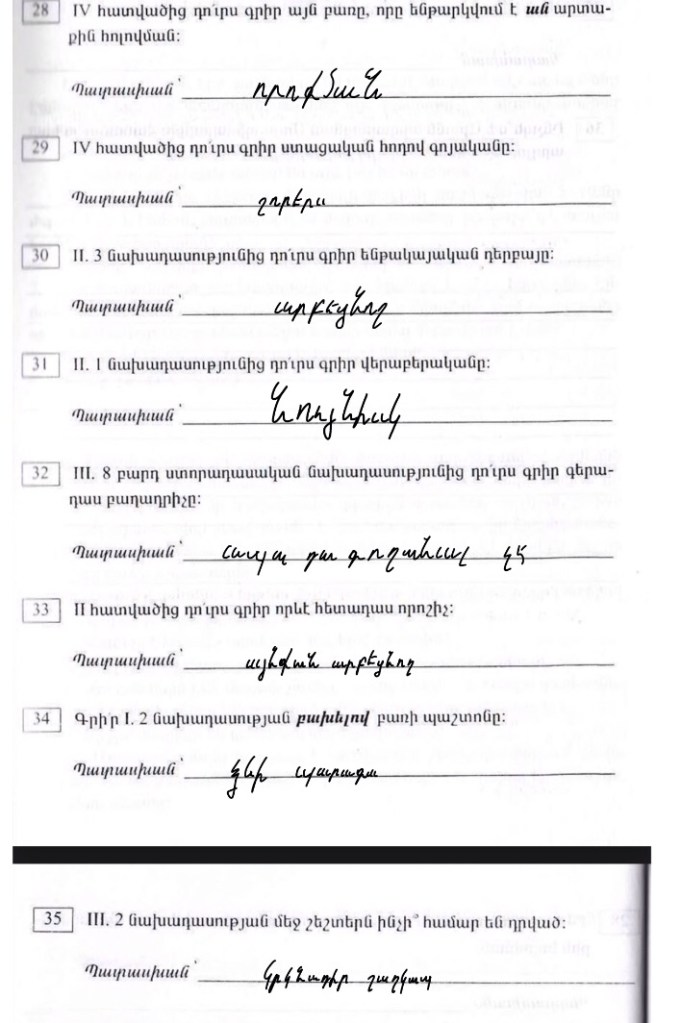 28 IV հատվածից դո՛ւրս գրիր այն բառը, որը ենթարկվում է ան արտա-
քին հոլովման:
Պատասխան՝ որոճման
29 IV հատվածից դո՛ւրս գրիր ստացական հոդով գոյականը:
Պատասխան՝ շորերս
30 II. 3 նախադասությունից դո՛ւրս գրիր ենթակայական դերբայը:
Պատասխան՝ արբեցնող
31 II. 1 նախադասությունից դո՛ւրս գրիր վերաբերականը:
Պատասխան՝ նույնիսկ
32 III. 8 բարդ ստորադասական նախադասությունից դո՛ւրս գրիր գերա-
դաս բաղադրիչը:
Պատասխան՝ չկ
33 II հատվածից դո՛ւրս գրիր որևէ հետադաս որոշիչ:
Պատասխան՝ այնքան արբեցնող
34 Գրի՛ր I. 2 նախադասության բախելով բառի պաշտոնը:
Պատասխան՝ ձևի պարագա
35 III. 2 նախադասության մեջ շեշտերն ինչի՞ համար են դրված:
Պատասխան՝ կրկնադիր շաղկապ